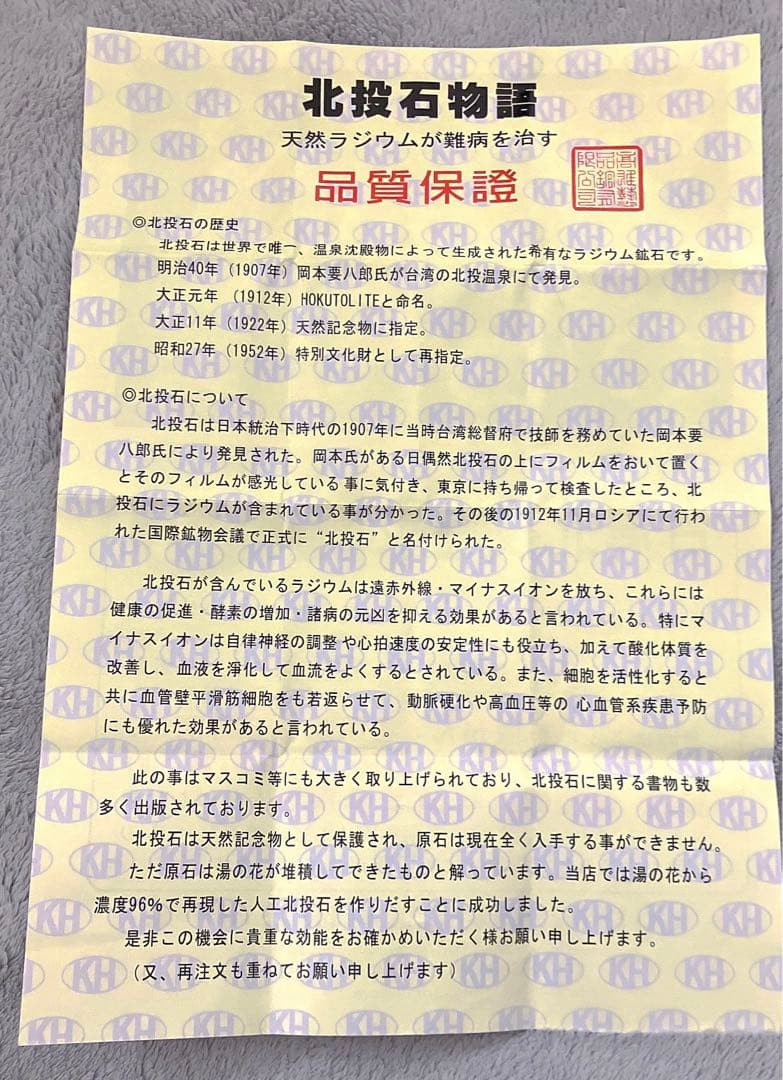 北投石物語
天然ラジウムが難病を治す
品質保證
◎北投石の歴史
北投石は世界で唯一、温泉沈殿物によって生成された希有なラジウム鉱石です。
明治40年（1907年）岡本要八郎氏が台湾の北投温泉にて発見。
大正元年 （1912年）HOKUTOLITEと命名。
大正11年（1922年）天然記念物に指定。
昭和27年（1952年）特別文化財として再指定。
◎北投石について
北投石は日本統治下時代の1907年に当時台湾総督府で技師を務めていた岡本要
八郎氏により発見された。岡本氏がある日偶然北投石の上にフィルムをおいて置く
とそのフィルムが感光している 事に気付き、東京に持ち帰って検査したところ、北
投石にラジウムが含まれている事が分かった。その後の1912年11月ロシアにて行わ
れた国際鉱物会議で正式に“北投石”と名付けられた。
北投石が含んでいるラジウムは遠赤外線・マイナスイオンを放ち、これらには
健康の促進・酵素の増加・諸病の元凶を抑える効果があると言われている。特にマ
イナスイオンは自律神経の調整や心拍速度の安定性にも役立ち、加えて酸化体質を
改善し、血液を淨化して血流をよくするとされている。また、細胞を活性化すると
共に血管壁平滑筋細胞をも若返らせて、動脈硬化や高血圧等の 心血管系疾患予防
にも優れた効果があると言われている。
此の事はマスコミ等にも大きく取り上げられており、北投石に関する書物も数
多く出版されております。
北投石は天然記念物として保護され、原石は現在全く入手する事ができません。
ただ原石は湯の花が堆積してできたものと解っています。当店では湯の花から
濃度96%で再現した人工北投石を作りだすことに成功しました。
是非この機会に貴重な効能をお確かめいただく様お願い申し上げます。
（又、再注文も重ねてお願い申し上げます）
KH